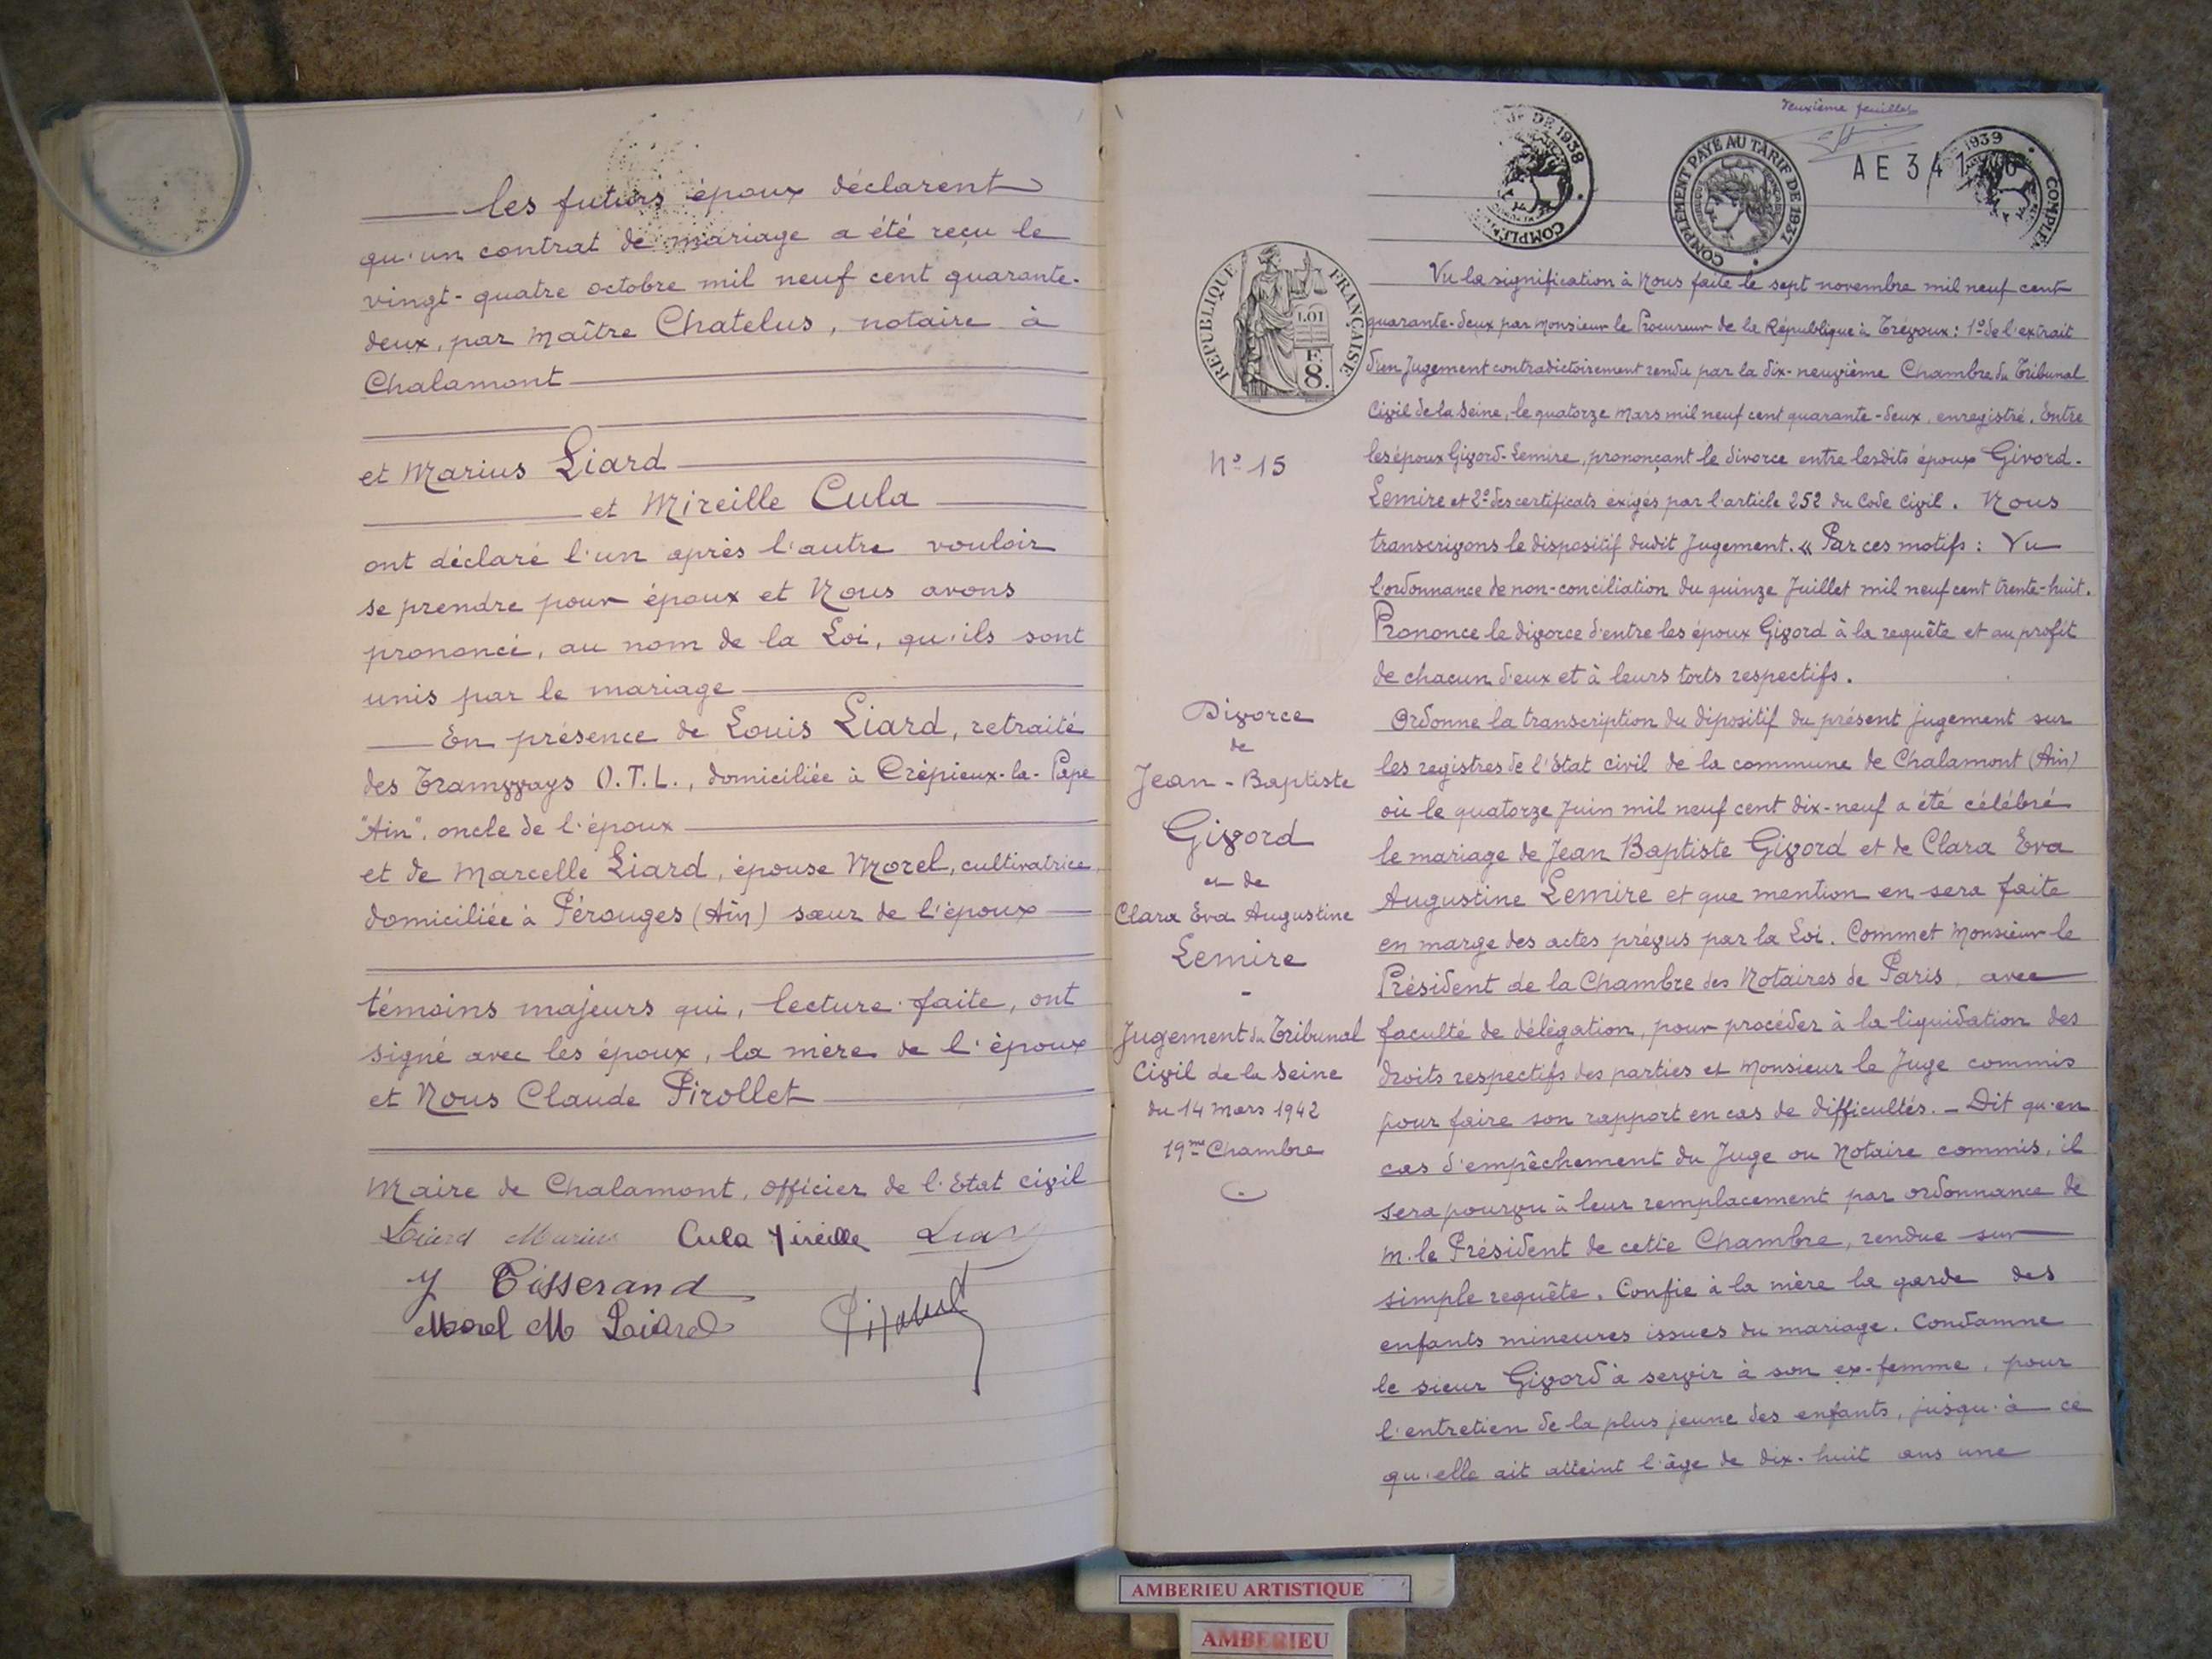 les futurs époux déclarent
qu'un contrat de mariage a été reçu le
vingt-quatre octobre mil neuf cent quarante-
deux, par maître Chatelus, notaire à
Chalamont
et Marius Liard
et Mireille Cula
ont déclaré l'un après l'autre vouloir
se prendre pour époux et Nous avons
prononcé, au nom de la Loi, qu'ils sont
unis par le mariage
En présence de Louis Liard, retraité
des Tramways O.T.L., domiciliée à Crépieux-la-Pape
"Ain", oncle de l'époux
et de Marcelle Liard, épouse Morel, cultivatrice,
domiciliée à Pérouges (Ain) sœur de l'époux
témoins majeurs qui, lecture faite, ont
signé avec les époux, la mère de l'époux
et Nous Claude Pirollet
Maire de Chalamont, officier de l'Etat civil
Liard Marius Cula Mireille Liard
Y Tisserand
Morel M Liard
Deuxième feuillet
DE 1938
COMPLÉ
COMPLÉMENT PAYÉ AU TARIF DE 1937
AE 34
1939
COMPLÉ
RÉPUBLIQUE FRANÇAISE
LOI
F.
8.
Nº 15
Divorce
de
Jean-Baptiste
Givord
et de
Clara Eva Augustine
Lemire
-
Jugement du Tribunal
Civil de la Seine
du 14 Mars 1942
19me Chambre
Vu la signification à Nous faite le sept novembre mil neuf cent
quarante-deux par Monsieur le Procureur de la République à Trévoux: 1º de l'extrait
d'un Jugement contradictoirement rendu par la dix-neuvième Chambre du Tribunal
Civil de la Seine, le quatorze Mars mil neuf cent quarante-deux, enregistré. Entre
les époux Givord-Lemire, prononçant le divorce entre lesdits époux Givord-
Lemire et 2º des certificats exigés par l'article 252 du Code Civil. Nous
transcrivons le dispositif dudit Jugement. « Par ces motifs: Vu
l'ordonnance de non-conciliation du quinze Juillet mil neuf cent trente-huit.
Prononce le divorce d'entre les époux Givord à la requête et au profit
de chacun d'eux et à leurs torts respectifs.
Ordonne la transcription du dipositif du présent jugement sur
les registres de l'Etat civil de la commune de Chalamont (Ain)
où le quatorze Juin mil neuf cent dix-neuf a été célébré
le mariage de Jean Baptiste Givord et de Clara Eva
Augustine Lemire et que mention en sera faite
en marge des actes prévus par la Loi. Commet Monsieur le
Président de la Chambre des Notaires de Paris, avec
faculté de délégation, pour procéder à la liquidation des
droits respectifs des parties et Monsieur le Juge commis
pour faire son rapport en cas de difficultés. - Dit qu'en
cas d'empêchement du Juge ou Notaire commis, il
sera pourvu à leur remplacement par ordonnance de
M. le Président de cette Chambre, rendue sur
simple requête. Confie à la mère la garde des
enfants mineures issues du mariage. Condamne
le sieur Givord à servir à son ex-femme, pour
l'entretien de la plus jeune des enfants, jusqu'à ce
qu'elle ait atteint l'âge de dix-huit ans une
AMBERIEU ARTISTIQUE
AMBERIEU